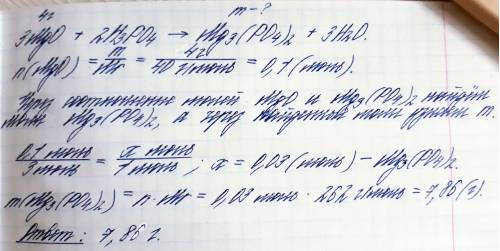 4г m-?
3MgO + 2H₃PO₄ → Mg₃(PO₄)₂ + 3H₂O.
n(MgO) = m/Mr = 4г/40 г/моль = 0,1 (моль).
Через соотношение молей MgO и Mg₃(PO₄)₂ найдём
моли Mg₃(PO₄)₂, а через найденные моли узнаем m.
0,1 моль/3 моль = x моль/1 моль ; x = 0,03 (моль) - Mg₃(PO₄)₂.
m(Mg₃(PO₄)₂) = n · Mr = 0,03 моль · 262 г/моль = 7,86 (г).
Ответ: 7,86 г.